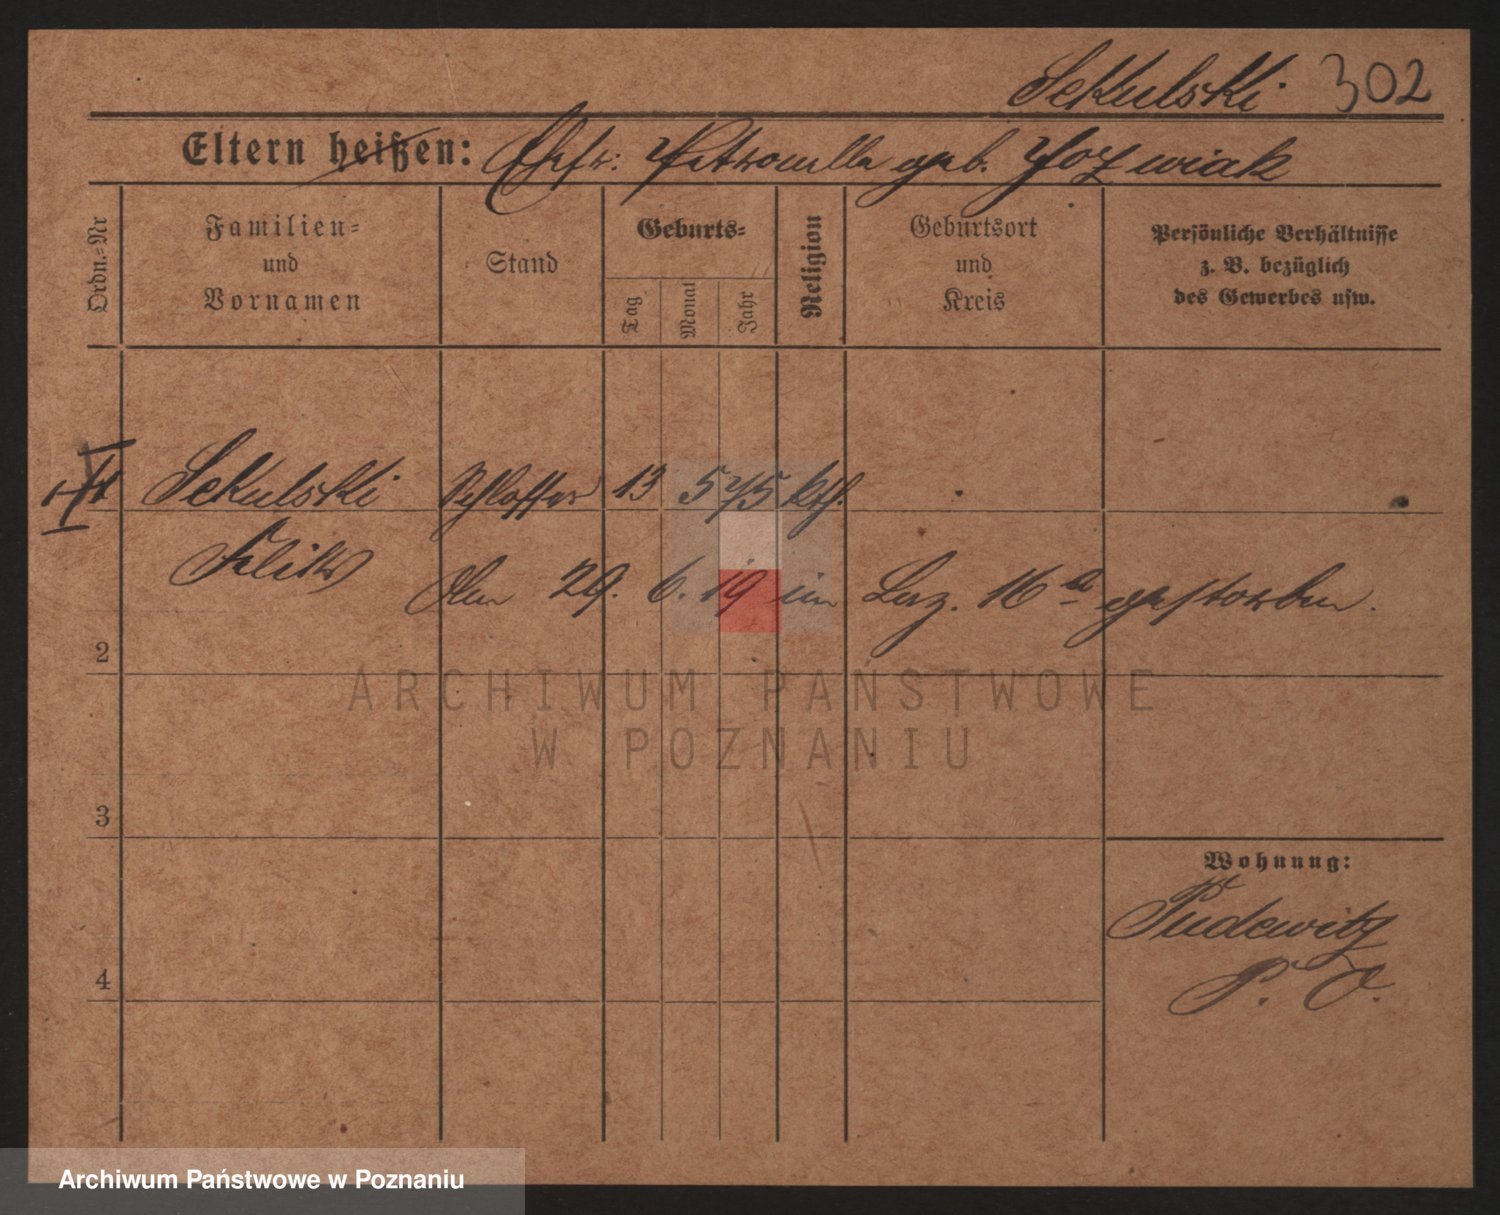 Sekulski 302
Eltern heißen: Ehefr: Petronella geb. Jozwiak
Ordn.=Nr
Familien=
und
Vornamen
Stand
Geburts=
Tag
Monat
Jahr
Religion
Geburtsort
und
Kreis
Persönliche Verhältnisse
z. B. bezüglich
des Gewerbes usw.
Sekulski Schlosser 13 5 75 kth.
Feliks
den 29. 6. 19 im Laz. 16 a gestorben.
2
ARCHIWUM PAŃSTWOWE
W POZNANIU
3
Wohnung:
Pudewitz
P. O.
4
Archiwum Państwowe w Poznaniu